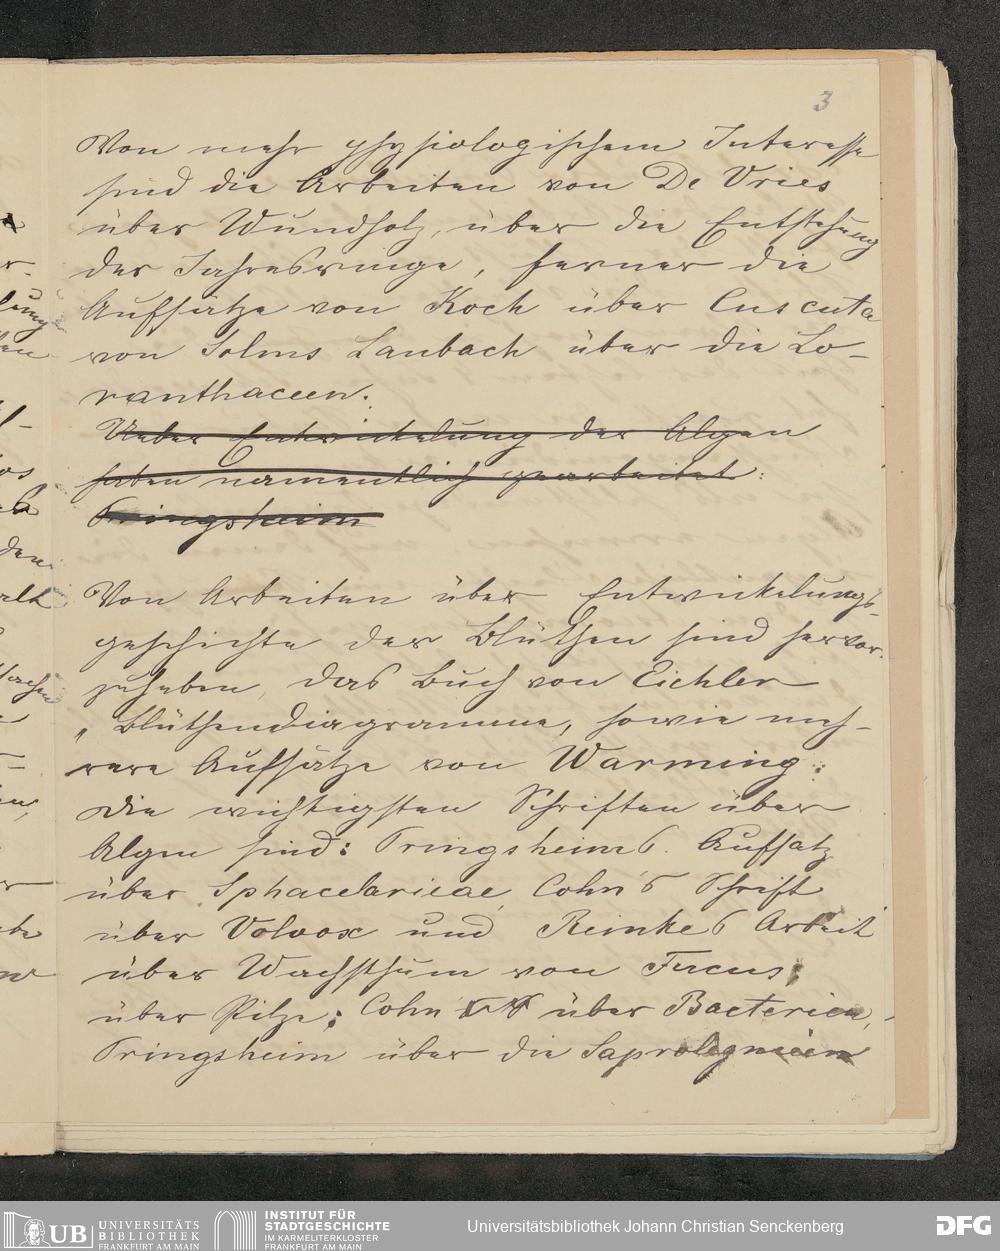 3
Von mehr physiologischem Interesse
sind die Arbeiten von De Vries
über Wundholz, über die Entstehung
der Jahresringe, ferner die
Aufsätze von Koch über Cuscuta
von Solms Laubach über die Lo-
ranthaceen.
Ueber Entwickelung der Algen
haben namentlich gearbeitet:
Pringsheim
Von Arbeiten über Entwickelungs-
geschichte der Blüthen sind hervor-
zuheben, das Buch von Eichler
„Blüthendiagramme, sowie meh-
rere Aufsätze von Warming.
Die wichtigsten Schriften über
Algen sind: Pringsheims Aufsatz
über Sphacelarieae, Cohn's Schrift
über Volvox und Reinkes Arbeit
über Wachsthum von Fucus;
über Pilze: Cohn über Bacterien,
Pringsheim über die Saprolegnieen
UB UNIVERSITÄTS
BIBLIOTHEK
FRANKFURT AM MAIN
INSTITUT FÜR
STADTGESCHICHTE
IM KARMELITERKLOSTER
FRANKFURT AM MAIN
Universitätsbibliothek Johann Christian Senckenberg
DFG